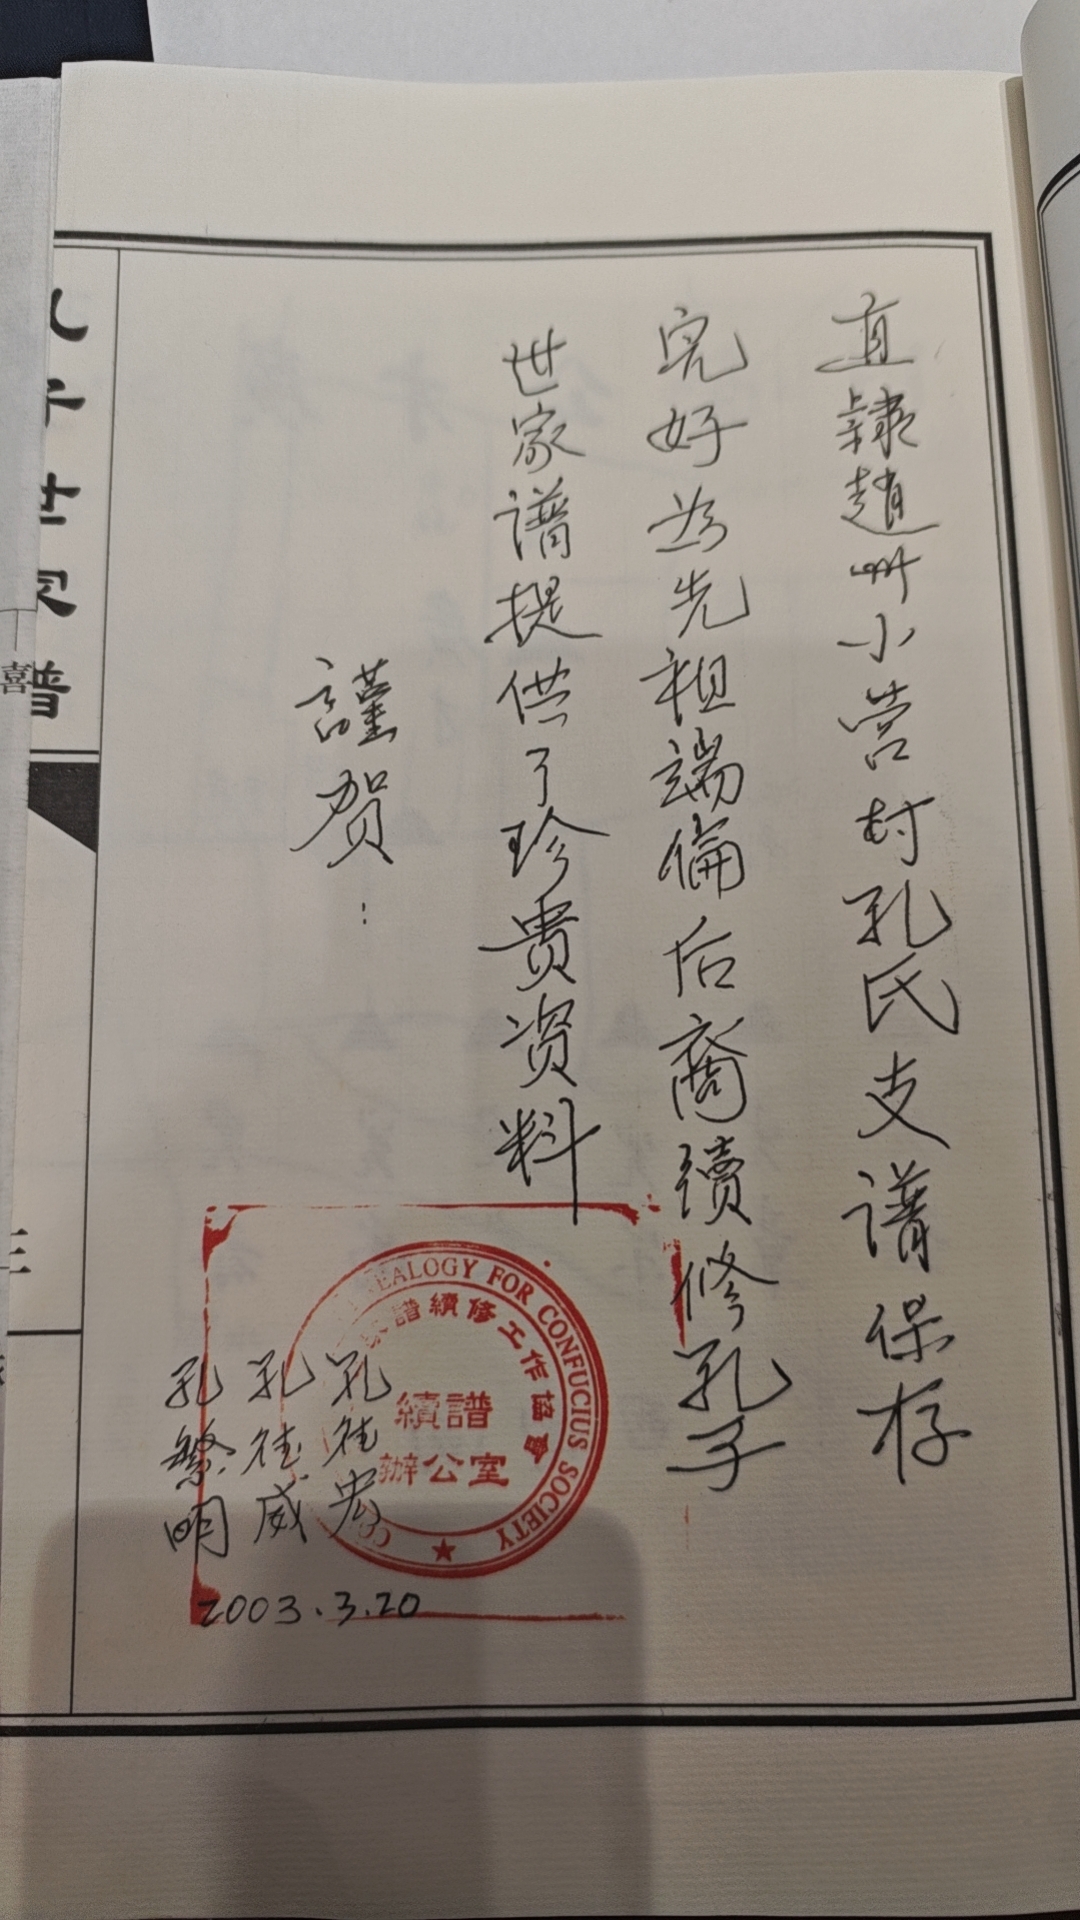 直隸趙州小营村孔氏支谱保存
完好为先祖端倫后裔續修孔子
世家谱提供了珍贵资料
謹贺:
孔德宏
孔德威
孔繁明
2003.3.20
EALOGY FOR CONFUCIUS SOCIETY
譜續修工作協會
續譜
辦公室
世家譜
喜